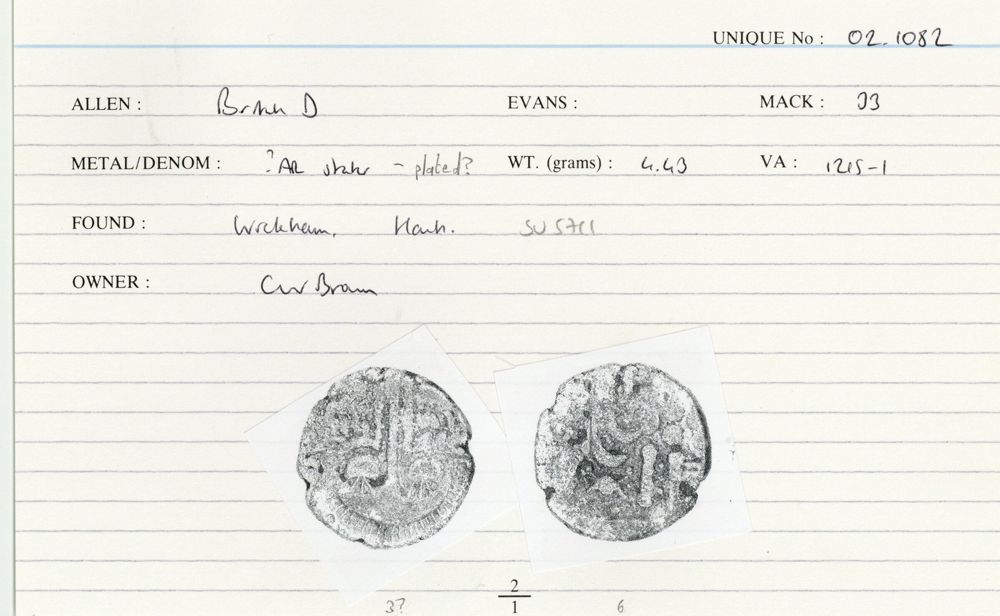 UNIQUE No : 02.1082
ALLEN : British D EVANS : MACK : 33
METAL/DENOM : ? AR stater - plated? WT. (grams) : 4.43 VA : 1215-1
FOUND : Wickham, Hants. SU 5711
OWNER :
2
3? 1 6